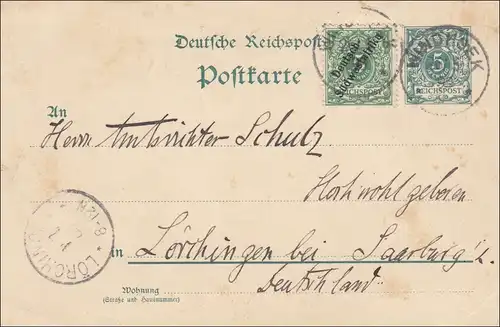 Deutsche Reichspost
Postkarte
Deutsch-
Südwest-Afrika
REICHSPOST
5
REICHSPOST
WINDHOEK
An
Herrn Amtsrichter Schulz
Hochwohlgeboren
in Lörchingen bei Saarburg i/L.
Deutschland.
LÖRCHINGEN
8-12N
Wohnung
(Straße und Hausnummer)